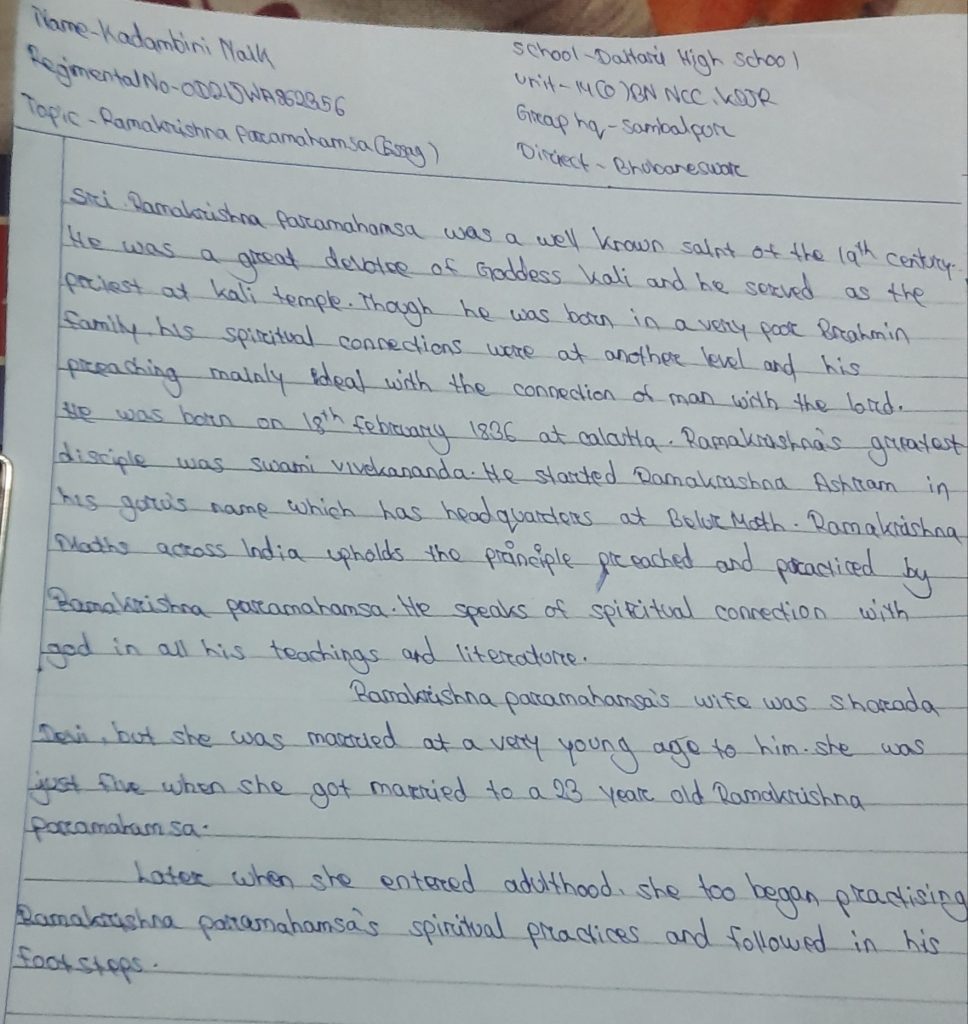 Name-Kadambini Naik
School-Daitari High School
Regimental No-OD21JWA862356
Unit-14(O)BN NCC, KDJR
Topic-Ramakrishna Paramahamsa(Essay)
Group hq-Sambalpur
Direct-Bhubaneswar
Sri Ramakrishna Paramahamsa was a well known saint of the 19th century.
He was a great devotee of Goddess Kali and he served as the
priest at Kali temple. Though he was born in a very poor Brahmin
family, his spiritual connections were at another level and his
preaching mainly ideal with the connection of man with the lord.
He was born on 18th February 1836 at calcutta. Ramakrashna's greatest
disciple was swami vivekananda. He started Ramakrashna Ashram in
his goru's name which has headquarters at Belur Math. Ramakrishna
Maths across India upholds the principle preached and practiced by
Ramakrishna paramahamsa. He speaks of spiritual connection with
god in all his teachings and literature.
Ramakrishna paramahamsa's wife was sharada
Devi, but she was married at a very young age to him. she was
just five when she got married to a 23 year old Ramakrishna
paramaham sa.
Later when she entered adulthood, she too began practising
Ramakrashna paramahamsa's spiritual practices and followed in his
foot steps.